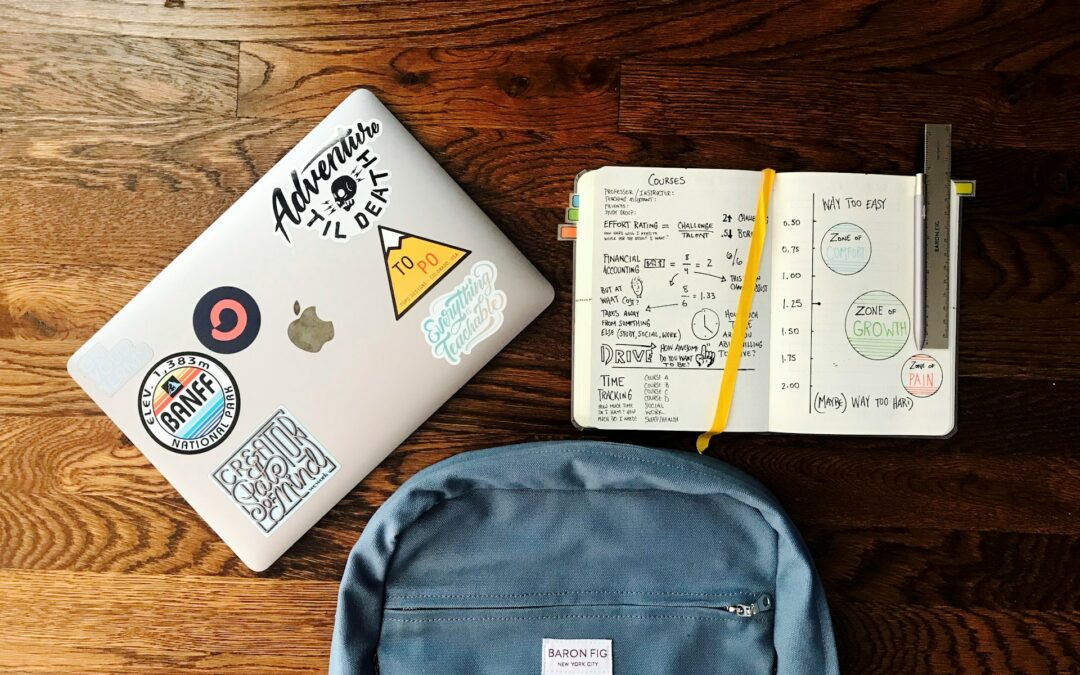 Adventure
'TIL DEATH
TO PO
Everything
is
Teachable
ELEV. 1,383m
BANFF
NATIONAL PARK
CREATOR
State
of Mind
COURSES
PROFESSOR / INSTRUCTOR:
TEACHING ASSISTANT:
FRIENDS:
STUDY GROUP:
EFFORT RATING = CHALLENGE
TALENT
2↑
.5↓
FINANCIAL
ACCOUNTING
= 8
4
= 2
6/6
BUT AT
WHAT COST?
8
6
= 1.33
TAKES AWAY
FROM SOMETHING
ELSE (STUDY, SOCIAL, WORK)
HOW MUCH
TIME
DRIVE
HOW AWESOME
DO YOU WANT
TO BE?
TIME
TRACKING
HOW MUCH TIME
DO I HAVE? HOW
MUCH DO I NEED?
COURSE A
COURSE B
COURSE C
COURSE D
SOCIAL
WORK
SLEEP/HEALTH
WAY TOO EASY
0.50
0.75
1.00
1.25
1.50
1.75
2.00
ZONE OF
COMFORT
ZONE OF
GROWTH
ZONE OF
PAIN
(MAYBE) WAY TOO HARD
BARON FIG
BARON FIG
NEW YORK CITY